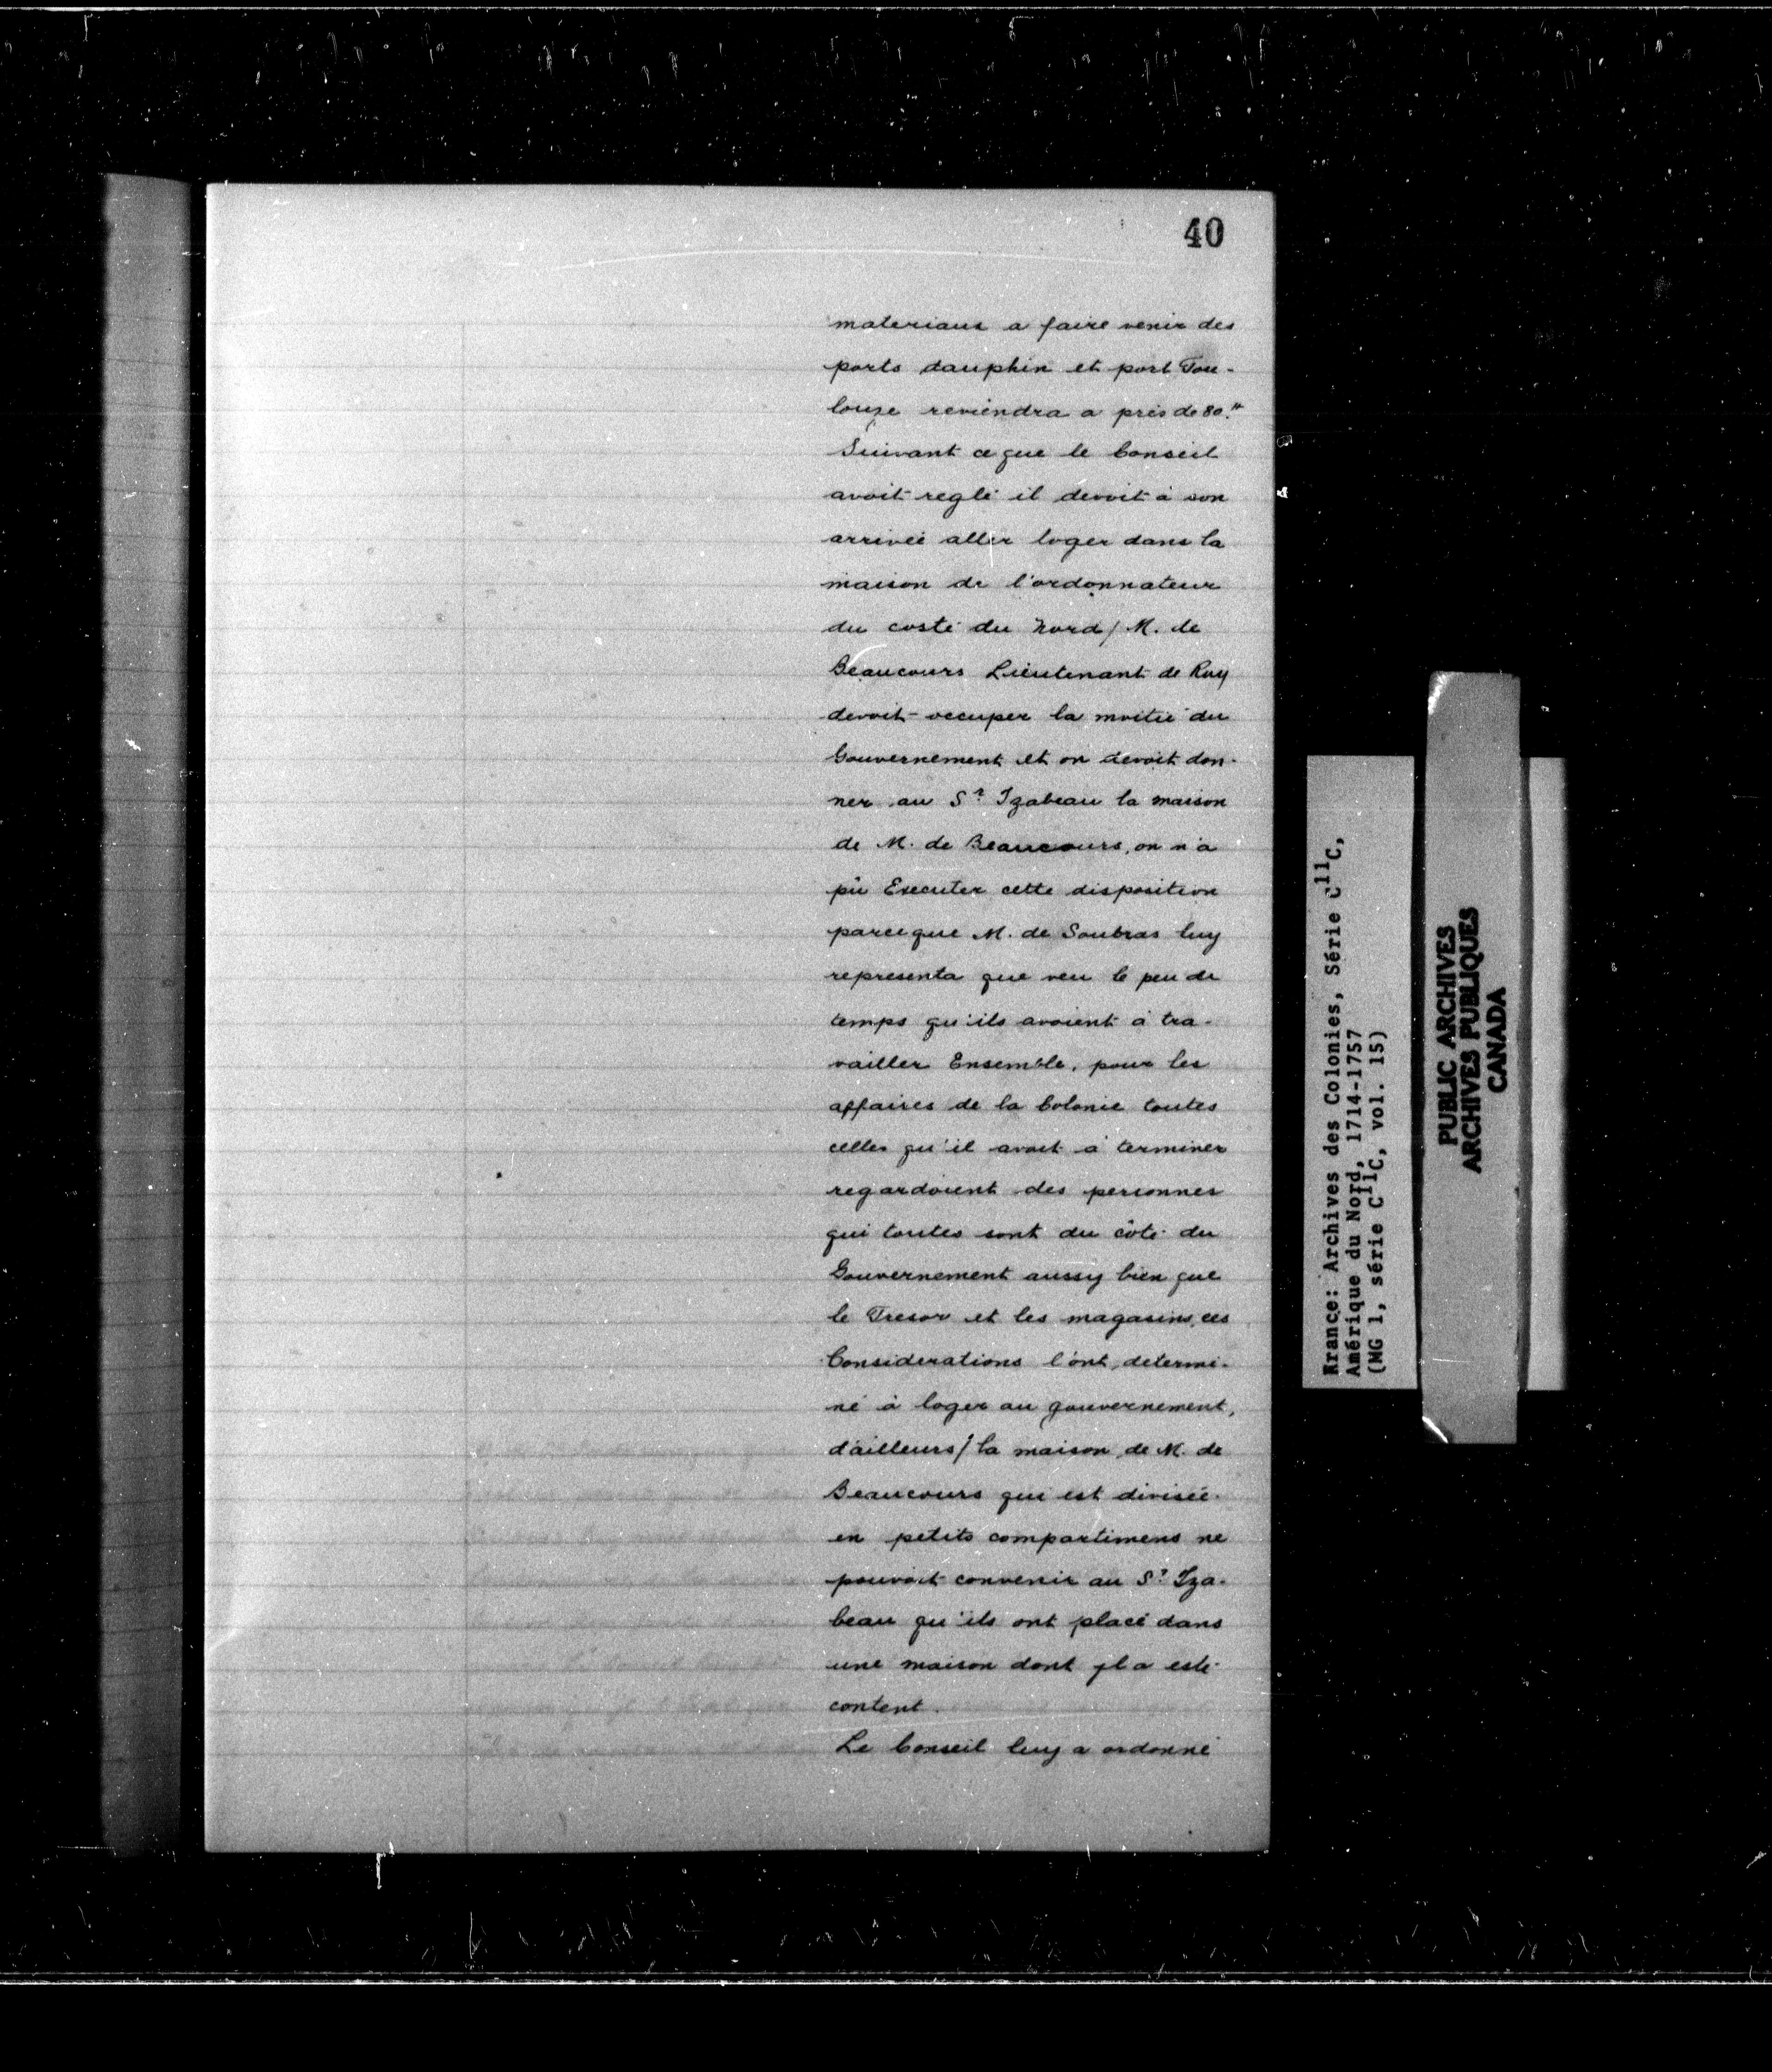 40
materiaux a faire venir des
ports dauphin et port Tou-
louze reviendra a près de 80.#
Suivant ce que le Conseil
avoit reglé il devoit à son
arrivée aller loger dans la
maison de l'ordonnateur
du costé du Nord / M. de
Beaucours Lieutenant de Roy
devoit occuper la moitié du
Gouvernement et on devoit don-
ner au Sr Izabeau la maison
de M. de Beaucours, on n'a
pû Executer cette disposition
parceque M. de Soubras luy
representa que veu le peu de
temps qu'ils avoient à tra-
vailler Ensemble, pour les
affaires de la Colonie toutes
celles qu'il avoit à terminer
regardoient des personnes
qui toutes sont du côté du
Gouvernement aussy bien que
le Tresor et les magasins, ces
Considerations l'ont determi-
né à loger au gouvernement,
d'ailleurs / la maison de M. de
Beaucours qui est divisée
en petits compartimens ne
pouvoit convenir au Sr Iza-
beau qu'ils ont placé dans
une maison dont yl a esté
content.
Le Conseil luy a ordonné
France: Archives des Colonies, Série C11C,
Amérique du Nord, 1714-1757
(MG 1, série C11C, vol. 15)
PUBLIC ARCHIVES
ARCHIVES PUBLIQUES
CANADA